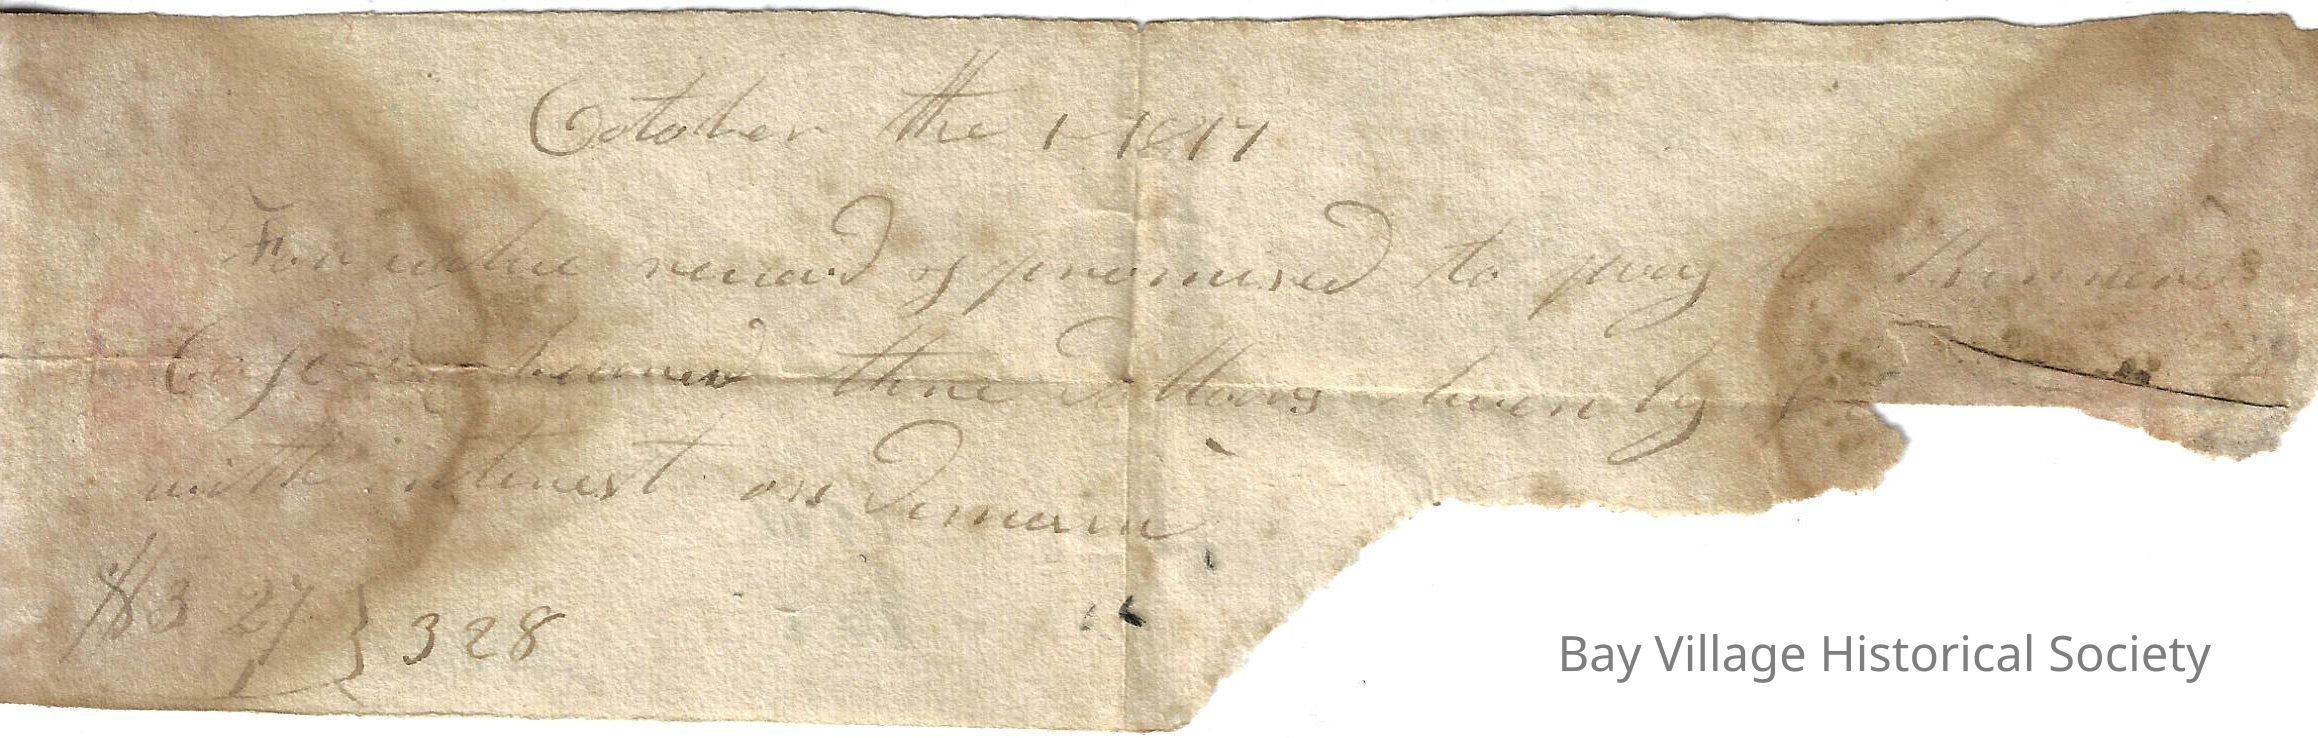 October the 1 1817
For value receivd of promised to pay to
or bearer three Dollars twenty
with interest on Deman
$3 27 } 328
Bay Village Historical Society